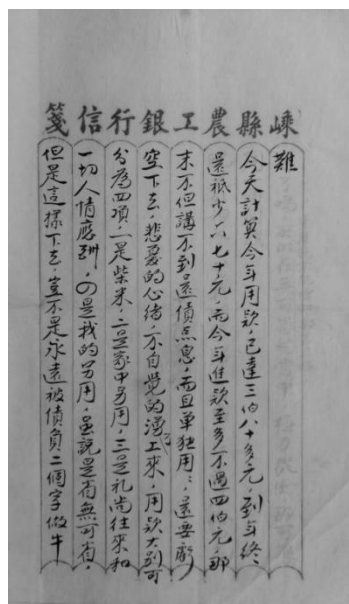 嵊縣農工銀行信箋
難
今天計算今年用欵，已達三伯八十多元，到年終、
還祇少六七十元，而今年進欵至多不過四伯元，那
末不但講不到還債点息，而且单独用：，還要虧
空下去，悲憂的心绪，不自覺的湧上來，用欵大别可
分為四項，一是柴米，二是家中另用，三是礼尚往來和
一切人情應酬，四是我的另用，虽説是省無可省，
但是這樣下去，豈不是永遠被債負二個字做牛